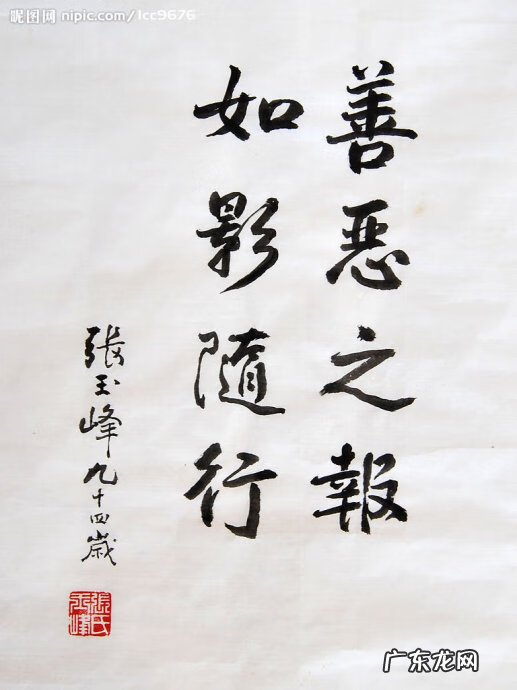 昵图网 nipic.com/lcc9676
善惡之報
如影隨行
張玉峰九十四歲
張氏玉峰
广东龙网